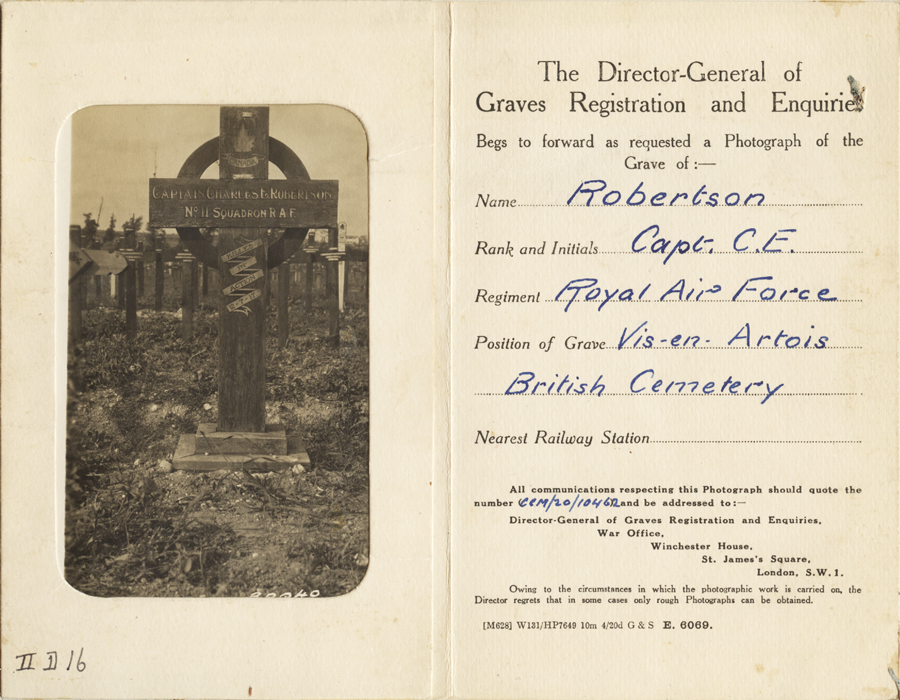 CAPTAIN CHARLES E. ROBERTSON
No 11 SQUADRON R.A.F.
KILLED
ACTION
II D 16
The Director-General of
Graves Registration and Enquiries
Begs to forward as requested a Photograph of the
Grave of :—
Name Robertson
Rank and Initials Capt. C.E.
Regiment Royal Air Force
Position of Grave Vis-en-Artois
British Cemetery
Nearest Railway Station
All communications respecting this Photograph should quote the
number and be addressed to :—
Director-General of Graves Registration and Enquiries,
War Office,
Winchester House,
St. James's Square,
London, S.W.1.
Owing to the circumstances in which the photographic work is carried on, the
Director regrets that in some cases only rough Photographs can be obtained.
[M628] W131/HP7649 10m 4/20d G & S E. 6069.